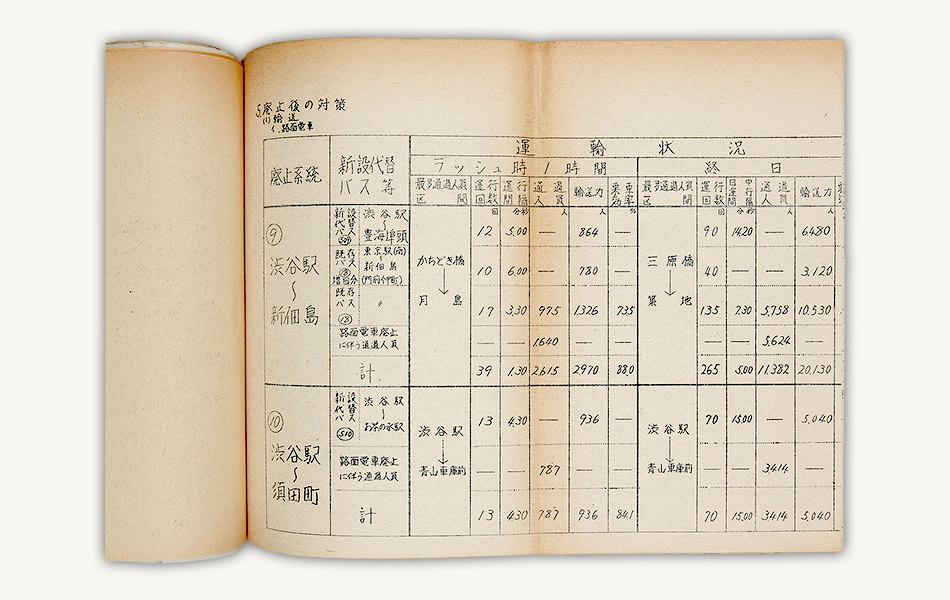 5.廃止後の対策
(1)輸送
イ.路面電車
廃止系統 新設代替バス等 運輸状況
ラッシュ時1時間 終日
最多通過人員区間 運行回数 運行間隔 通過人員 輸送力 乗車効率 最多通過人員区間 運行回数 日中運行間隔 通過人員 輸送力
回 分秒 人 人 % 回 分秒 人 人
⑨ 渋谷駅〜新佃島
新設代替バス 渋谷駅〜豊海埠頭 12 5.00 — 864 — 90 14.20 — 6480
既存バス 東京駅(南)〜新佃島 (門前仲町) 増回分 かちどき橋→月島 10 6.00 — 780 — 三原橋→築地 40 — — 3.120
既存バス ⑬ 〃 17 3.30 975 1326 73.5 135 7.30 5,758 10,530
路面電車廃止に伴う通過人員 — — 1640 — — — — 5,624 —
計 39 1.30 2,615 2970 88.0 265 5.00 11.382 20,130
⑩ 渋谷駅〜須田町
新設代替バス 510 渋谷駅〜お茶の水駅 渋谷駅→青山車庫前 13 4.30 — 936 — 渋谷駅→青山車庫前 70 15.00 — 5,040
路面電車廃止に伴う通過人員 — — 787 — — — — 3414 —
計 13 4.30 787 936 84.1 70 15.00 3,414 5,040